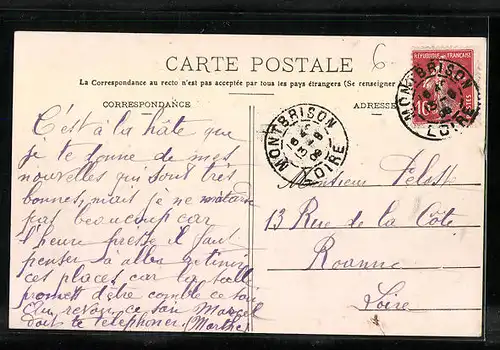 6
RÉPUBLIQUE FRANÇAISE
CARTE POSTALE
La Correspondance au recto n'est pas acceptée par tous les pays étrangers (Se renseigner
CORRESPONDANCE
ADRESSE
MONTBRISON
LOIRE
MONTBRISON
LOIRE
C'est à la hâte que
je te donne de mes
nouvelles qui sont très
bonnes, mais je ne
pas beaucoup car
l'heure presse il faut
penser à aller retenir
ces places car la salle
promet d'être comble ce soir
Au revoir, ce soir Marcel
doit te téléphoner (Marthe)
Monsieur
13 Rue de la Côte
Roanne
Loire